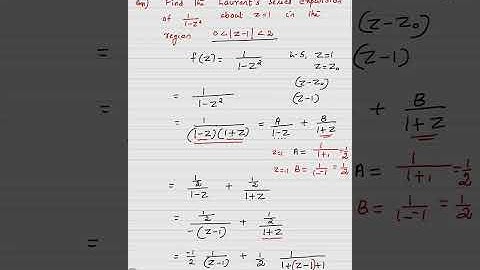 Qn) Find the Laurent's series expansion
of 1/(1-z²) about z=1 in the
region 0<|z-1|<2
f(z) = 1/(1-z²) z=1
z=z₀
(z-z₀)
= 1/(1-z²) (z-1)
= 1/((1-z)(1+z)) = A/(1-z) + B/(1+z)
z=1 A = 1/(1+1) = 1/2
B = 1/(1--1) = 1/2
= (1/2)/(1-z) + (1/2)/(1+z)
= (1/2)/(-(z-1)) + (1/2)/(1+z)
= -1/2 1/(z-1) + 1/2 1/(1+(z-1)+1)
=
=
(z-z₀)
(z-1)
+ B/(1+z)
A = 1/(1+1) = 1/2
B = 1/(1--1) = 1/2